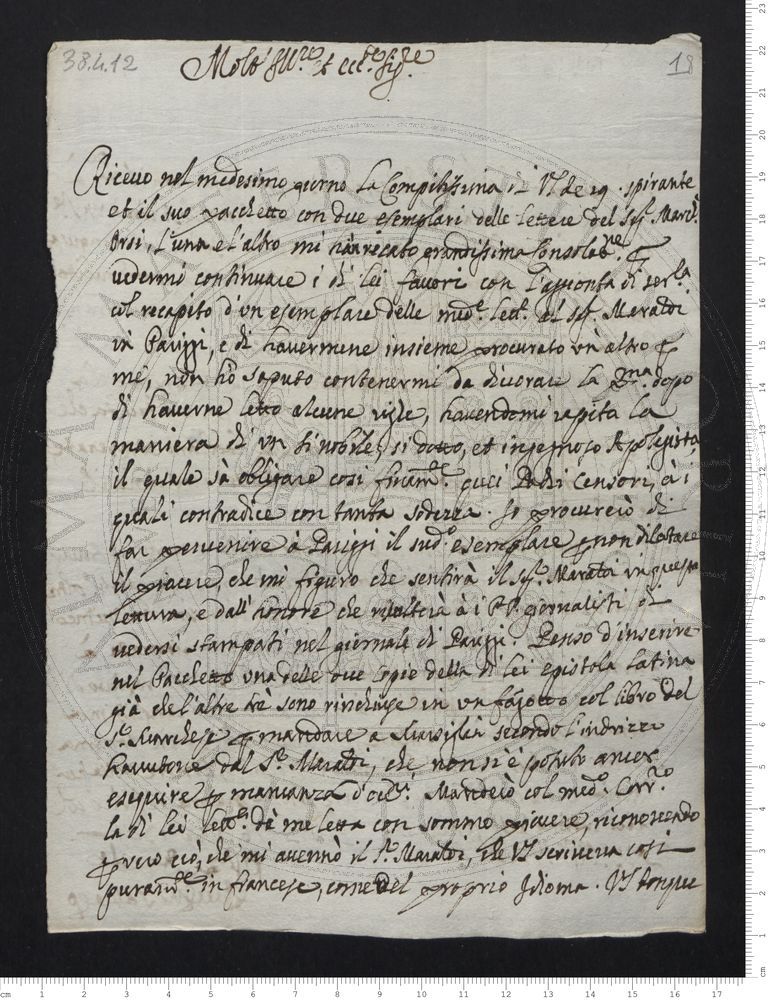 38.4.12
18
Molt' Ill.re et ecc.te Sig.re
Riceuo nel medesimo giorno la Compitissima di VS de 29. spirante
et il suo pacchetto con due esemplari delle lettere del Sig.
Orsi, l'una e l'altro mi hanno recato grandissima Consolat.ne
uedermi continuare i di lei fauori con l'aggionta di
col recapito d'vn esemplare delle med.e lett.e al Sig. Maraldi
in Pariggi, e di hauermene insieme procurato vn altro p
me, non hò saputo contenermi da diuorare la p.ma dopo
di hauerne letto alcune righe, hauendomi rapita la
maniera di vn si nobile, si dotto, et ingegnoso Apologista,
il quale sà obligare cosi finam.te quei Padri Censori, à i
quali contradice con tanta sodezza. Io procurerò di
far peruenire à Pariggi il sud.o esemplare p non dilatare
il piacere, che mi figuro che sentirà il Sig. Maraldi in questa
lettura, e dall'honore che risulterà à i PP. giornalisti di
uedersi stampati nel giornale di Pariggi. Penso d'inserire
nel Pacchetto vna delle due copie della di lei epistola latina
già che l'altre trè sono rinchiuse in vn fagotto col libro del
S.r Marchese p mandare a Marsiglia secondo l'indrizzo
hauutone dal S.r Maraldi, che non si è potuto ancor
eseguire p mancanza d'occ.ni Manderò col med.o Corr.o
la di lei lett.a da me letta con sommo piacere, riconoscendo
p vero ciò, che mi accennò il S.r Maraldi, che VS scriueua cosi
puram.te in francese, come del proprio Idioma. VS